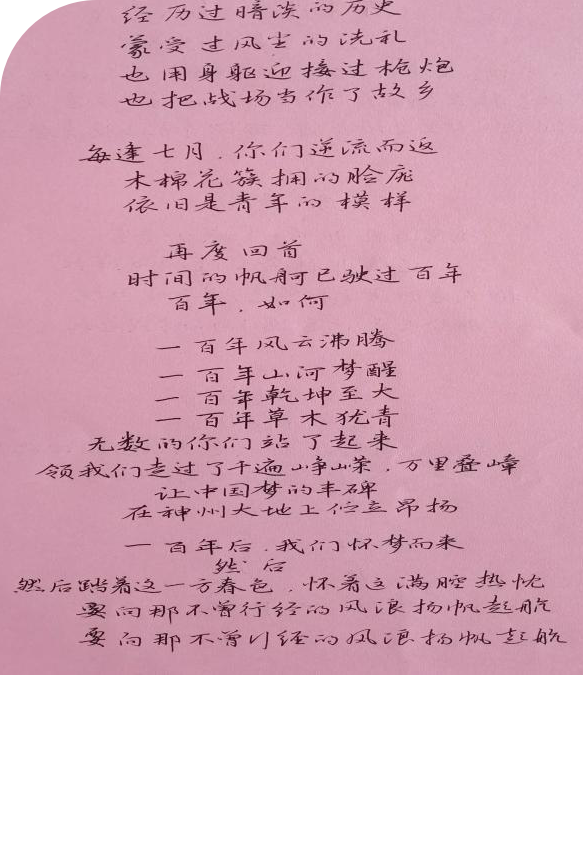 经历过暗淡的历史
蒙受过风尘的洗礼
也用身躯迎接过枪炮
也把战场当作了故乡
每逢七月，你们逆流而返
木棉花簇拥的脸庞
依旧是青年的模样
再度回首
时间的帆舸已驶过百年
百年，如何
一百年风云沸腾
一百年山河梦醒
一百年乾坤至大
一百年草木犹青
无数的你们站了起来
领我们走过了千遍峥嵘，万里叠嶂
让中国梦的丰碑
在神州大地上伫立昂扬
一百年后，我们怀梦而来
然后
然后踏着这一方春色，怀着这满腔热忱
要向那不曾行经的风浪扬帆起航
要向那不曾行经的风浪扬帆起航